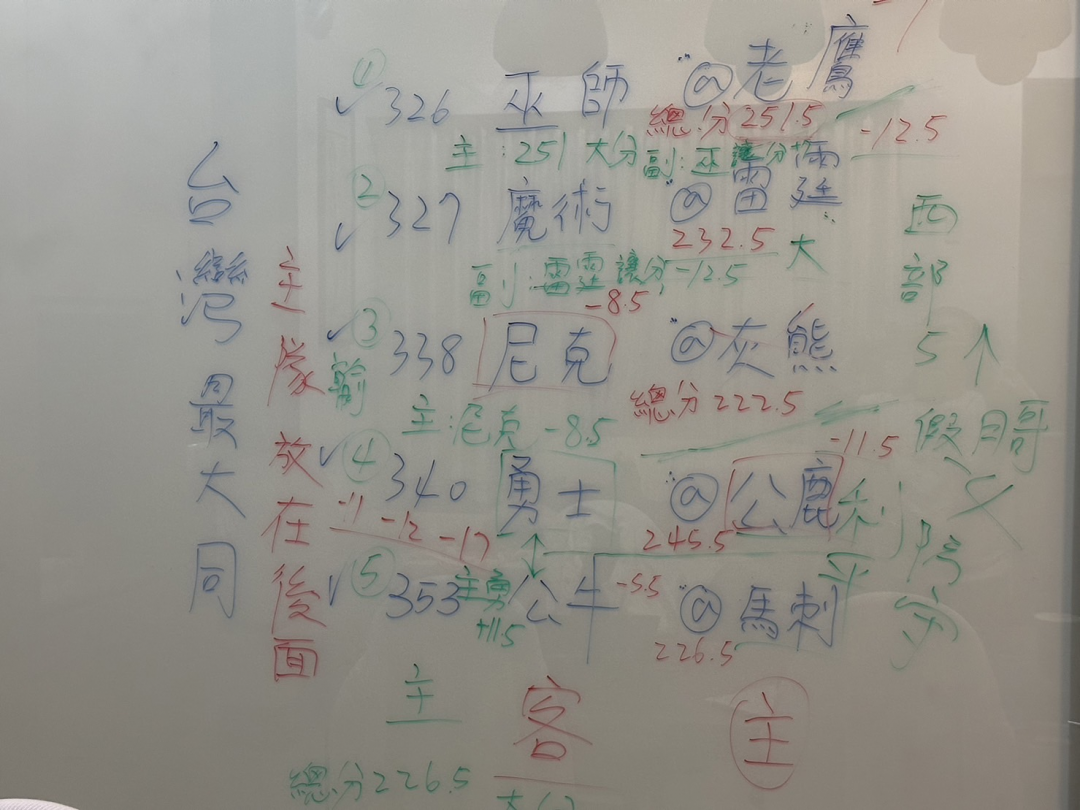 ① 326 巫師 @老鷹
總分 251.5 -12.5
主:251 大分 副:巫讓分
② 327 魔術 @雷霆
232.5 大
副:雷霆讓分 -12.5
-8.5
③ 338 尼克 @灰熊
輸
總分 222.5
主:尼克 -8.5
-11.5
④ 340 勇士 @公鹿
-11 -12 -17
245.5
⑤ 353 公牛 -5.5 @馬刺
主勇
+11.5
226.5
主 客 主
總分226.5
台灣最大同
主隊放在後面
西部5↑
假日哥